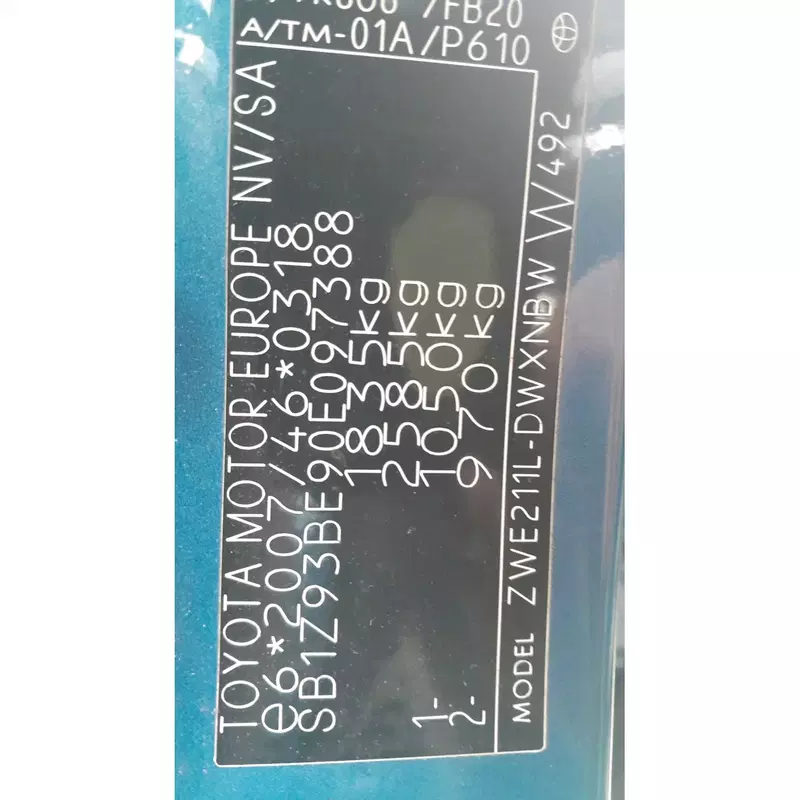 TOYOTA MOTOR EUROPE NV/SA
e6*2007/46*0318
SB1Z93BE90E097388
1835kg
2585kg
1- 1050kg
2- 970kg
MODEL ZWE211L-DWXNBW W 492
/FB20
A/TM-01A/P610